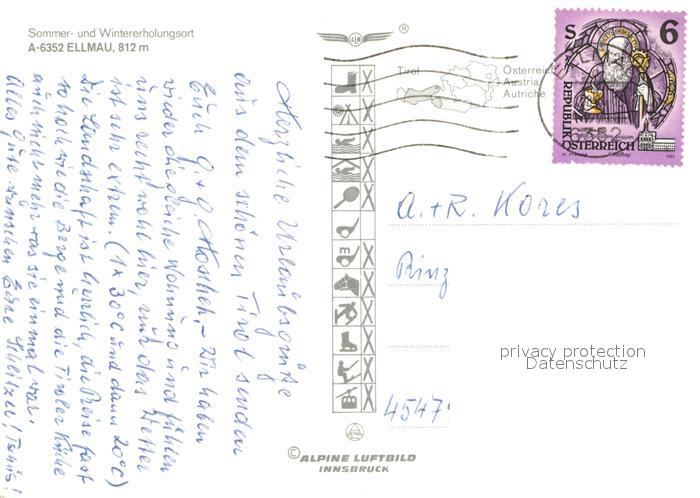 Sommer- und Wintererholungsort
A-6352 ELLMAU, 812 m
Herzliche Urlaubsgrüße
aus dem schönen Tirol senden
Euch G. + G. – Wir haben
wieder die gleiche Wohnung und fühlen
uns recht wohl hier, nur das Wetter
ist sehr extrem. (1x 30°C und dann 20°C)
Die Landschaft ist herrlich, die Preise fast
so hoch wie die Berge und die Tiroler Küche
auch nicht mehr was sie einmal war.
Alles Gute wünschen
Tschüs!
®
Tirol
Österreich
Austria
Autriche
S 6
REPUBLIK
ÖSTERREICH
A. + R. Kores
Rinz
4547
m
privacy protection
Datenschutz
© ALPINE LUFTBILD
INNSBRUCK